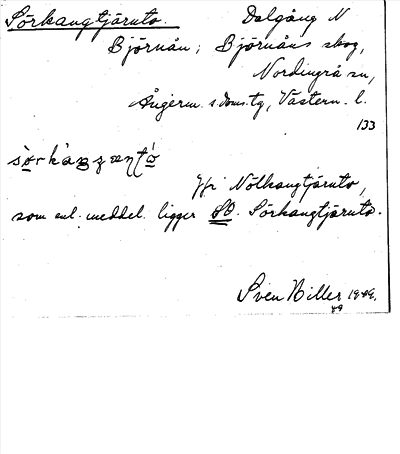 Sörhangtjärnto. Dalgång N
Björnån; Björnåns skog,
Nordingrå sn,
Ångerm. s. doms. tg, Västern. l.
133
Jfr Nölhangtjärnto,
som enl. meddel. ligger SO. Sörhangtjärnto.
Sven Biller 1949.
49